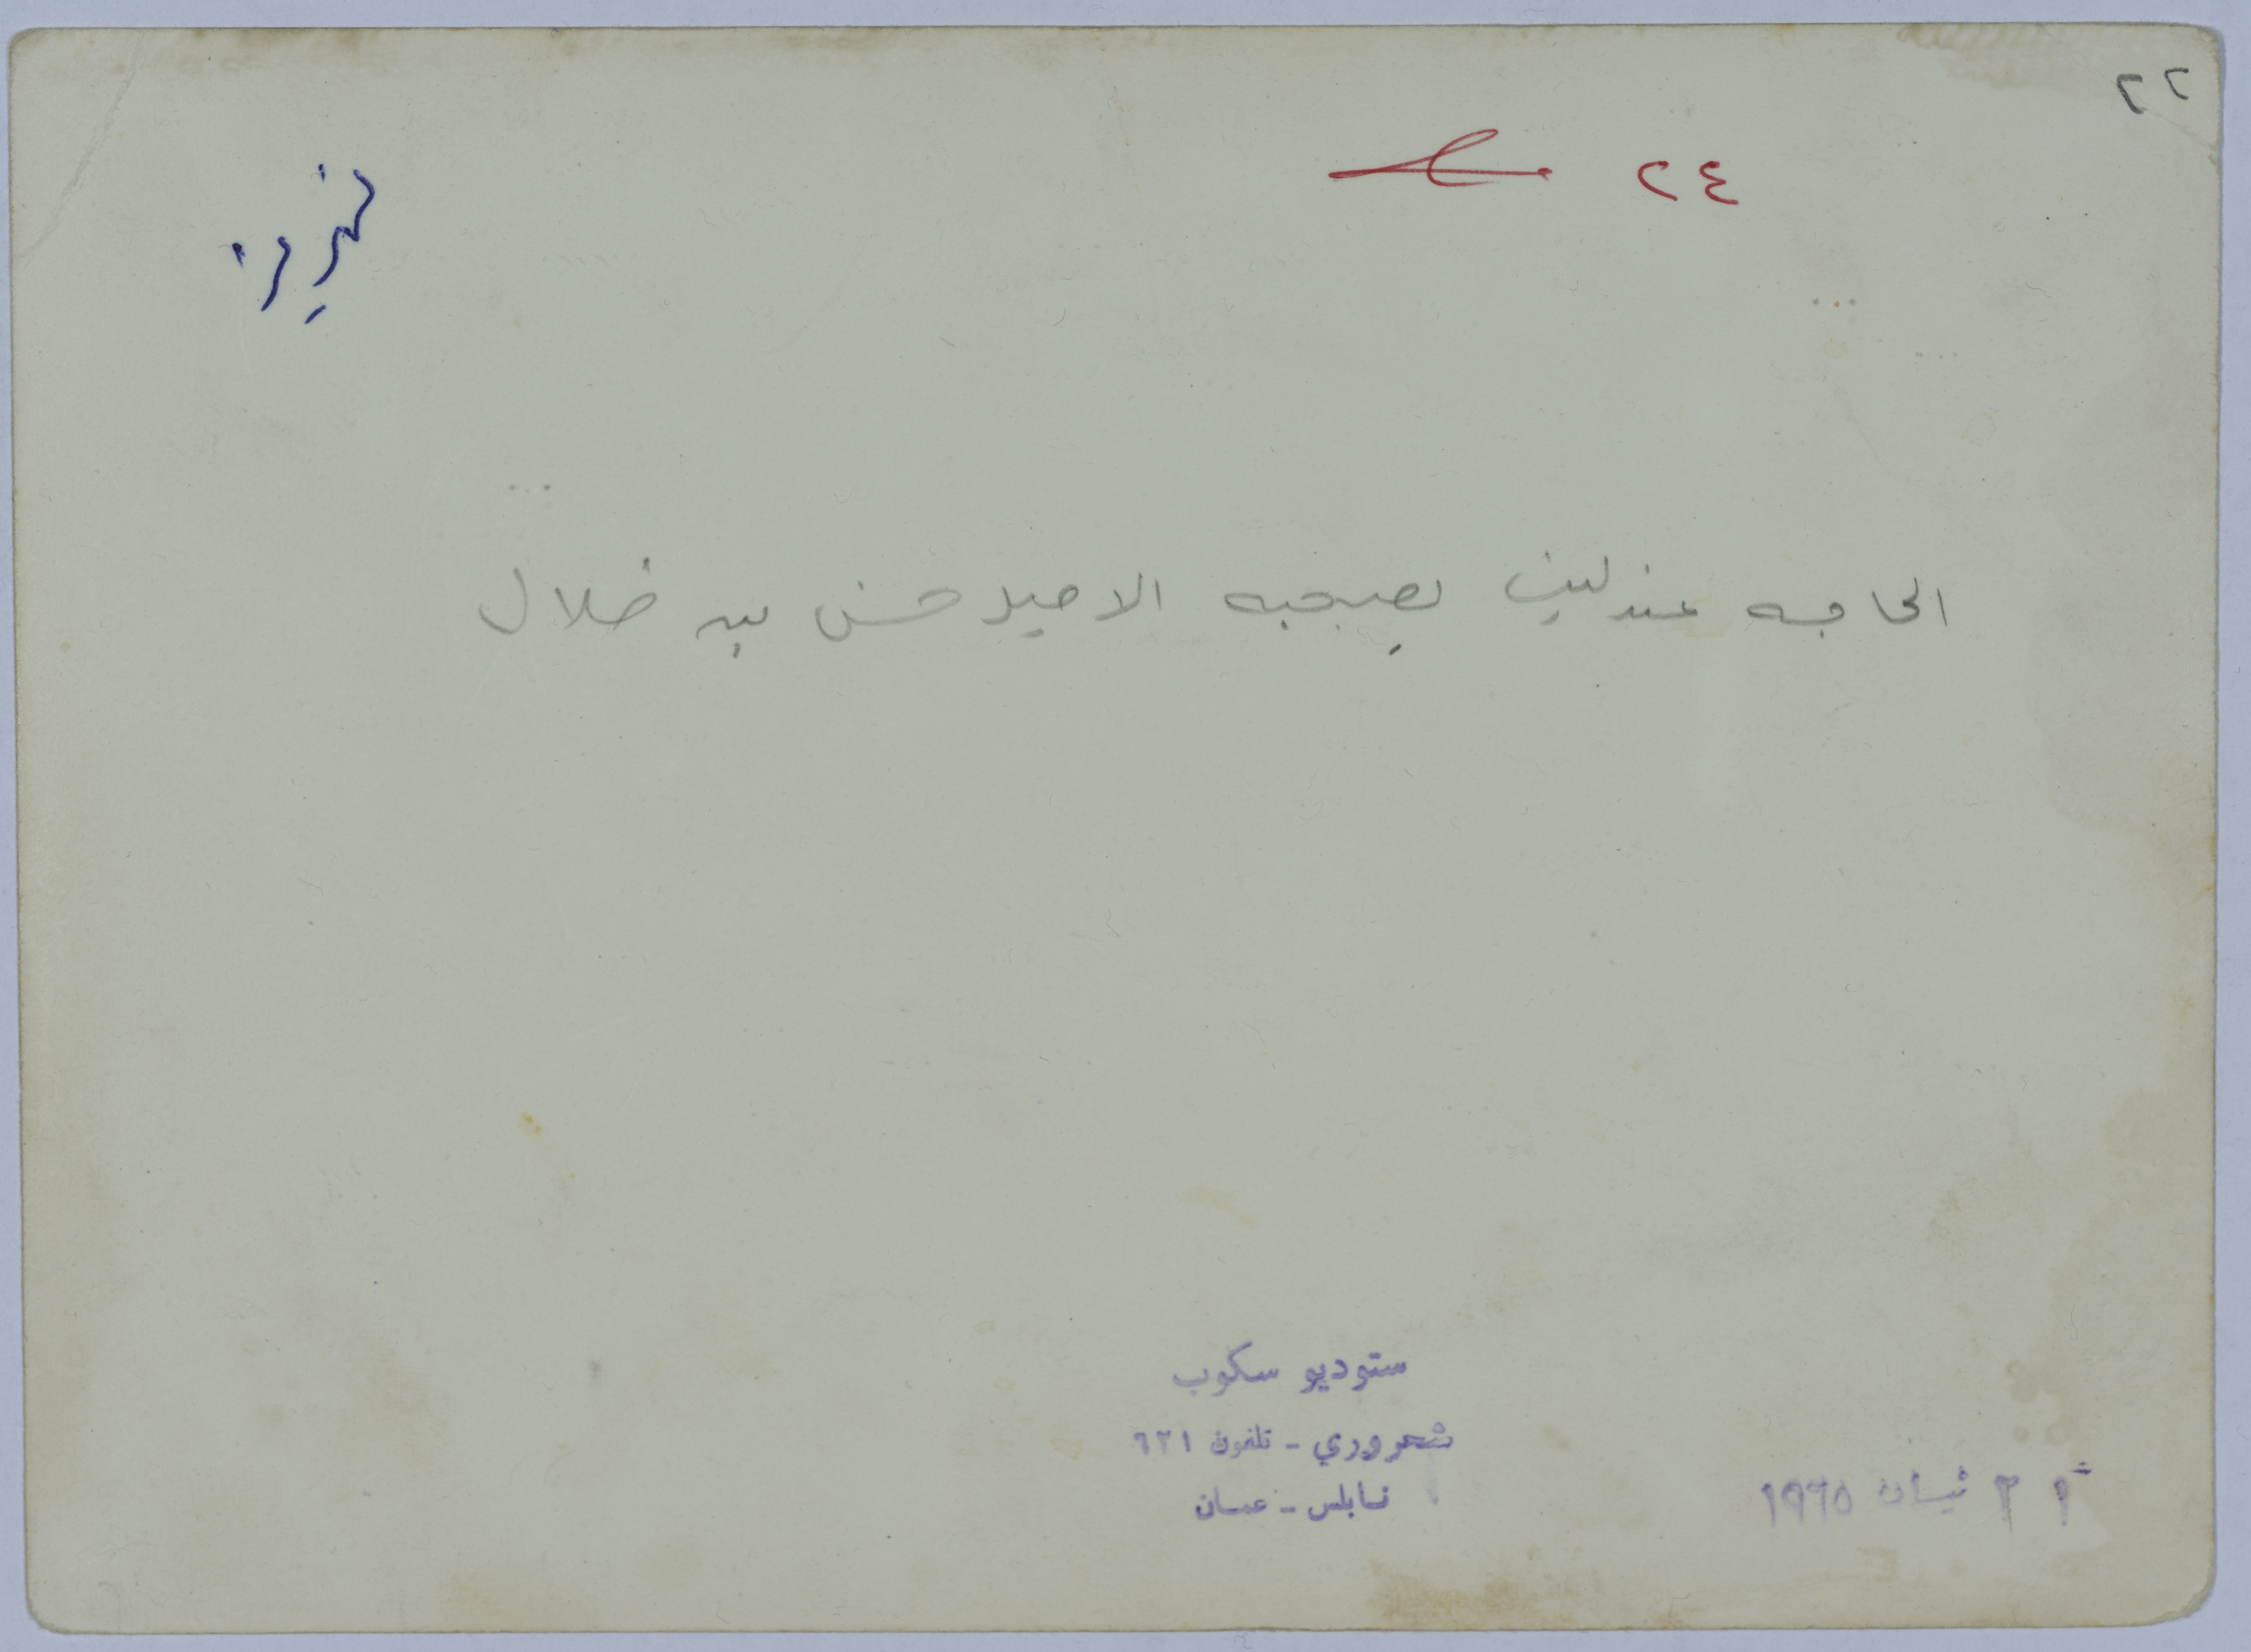 ٢٢
٢٤
الحاجه عندليب بصحبه الامير حسن بن طلال
ستوديو سكوب
شحروري - تلفون ٦٢١
نابلس - عمان
٢١ نيسان ١٩٦٥